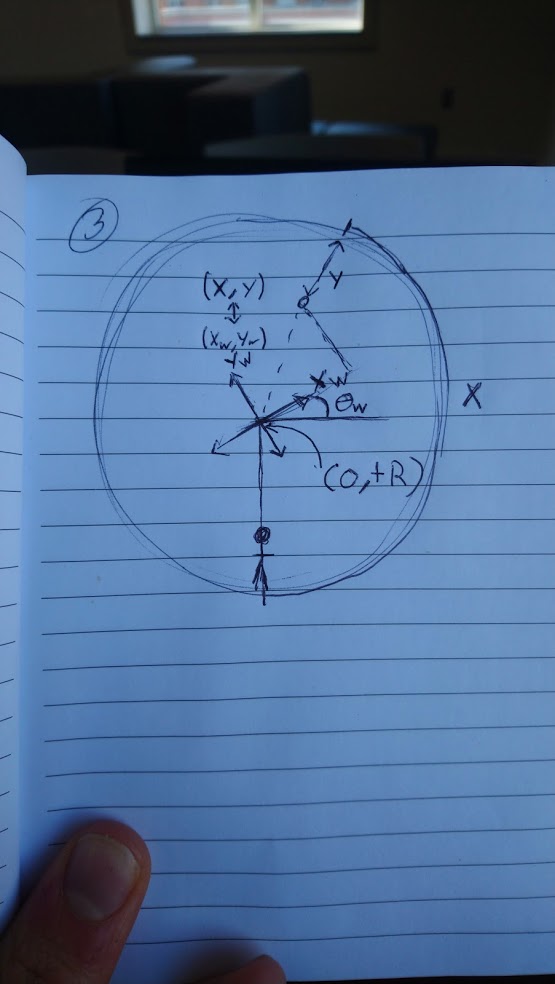 3
(X, Y)
(Xw, Yw)
Yw
Y
Xw
θw
X
(0,+R)